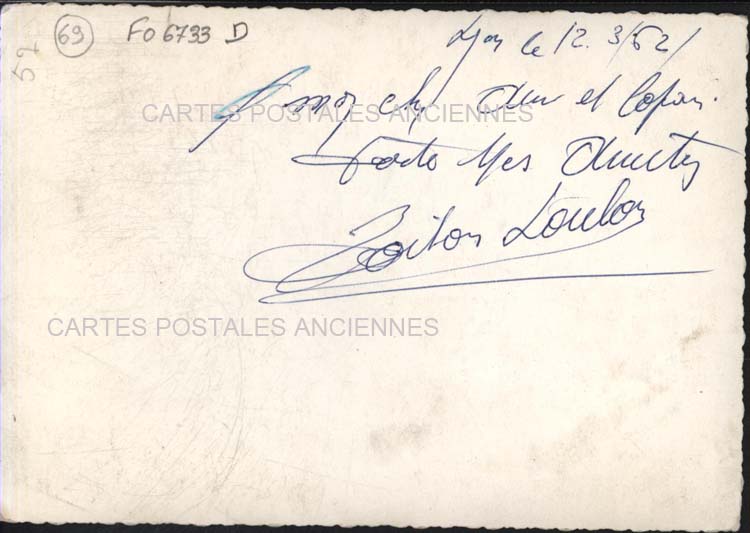 69 FO 6733 D
52
Lyon le 12. 3/52/
A mon cher Ami et Copain.
Toutes Mes Amitiés
CARTES POSTALES ANCIENNES
CARTES POSTALES ANCIENNES